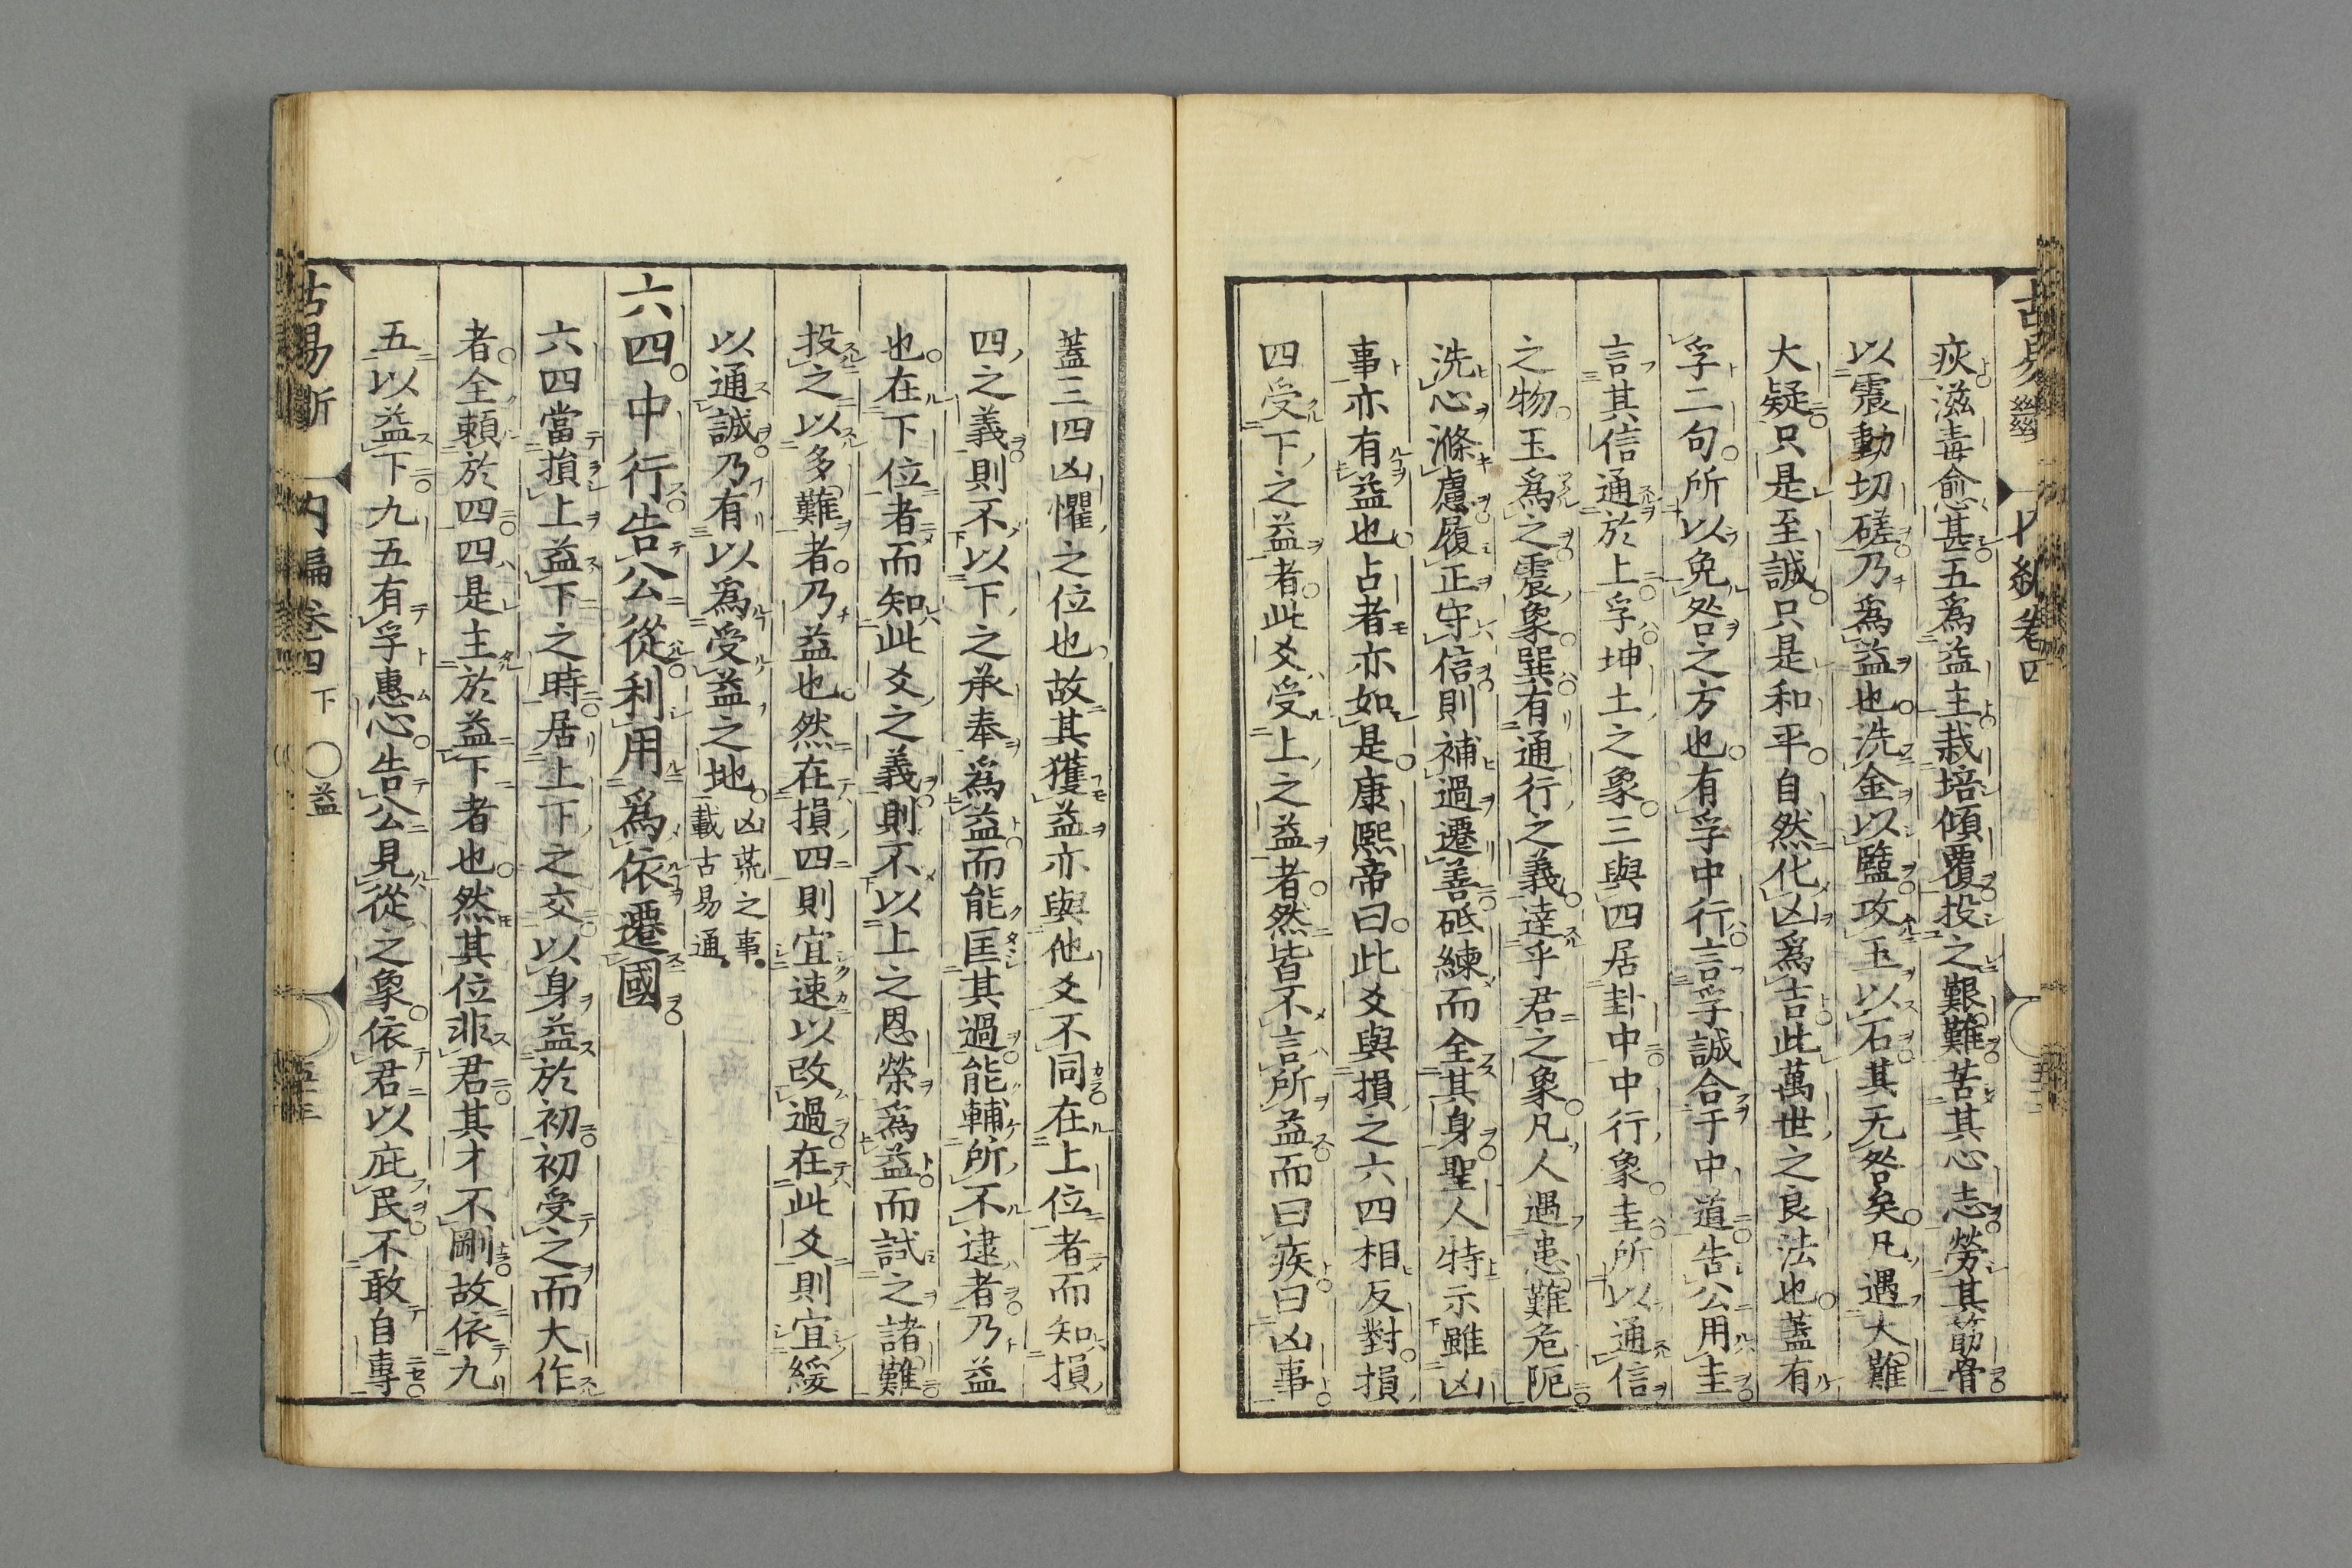 疢滋毒愈甚五爲益主栽培傾覆投之艱難苦其心志勞其筋骨
以震動切磋乃爲益也洗金以鹽攻玉以石其无咎矣凡遇大難
大疑只是至誠只是和平自然化凶爲吉此萬世之良法也蓋有
孚二句所以免咎之方也有孚中行言孚誠合于中道告公用圭
言其信通於上孚坤土之象三與四居卦中中行象圭所以通信
之物玉爲之震象巽有通行之義達乎君之象凡人遇患難危阨
洗心滌慮履正守信則補過遷善砥練而全其身聖人特示雖凶
事亦有益也占者亦如是康熙帝曰此爻與損之六四相反對損
四受下之益者此爻受上之益者然皆不言所益而曰疾曰凶事
蓋三四凶懼之位也故其獲益亦與他爻不同在上位者而知損
四之義則不以下之承奉爲益而能匡其過能輔所不逮者乃益
也在下位者而知此爻之義則不以上之恩榮爲益而試之諸難
投之以多難者乃益也然在損四則宜速以改過在此爻則宜綏
以通誠乃有以爲受益之地凶荒之事載古易通
六四中行告公從利用爲依遷國
六四當損上益下之時居上下之交以身益於初初受之而大作
者全賴於四四是主於益下者也然其位非君其才不剛故依九
五以益下九五有孚惠心告公見從之象依君以庇民不敢自專
古易斷 內編卷四下 益 五十三